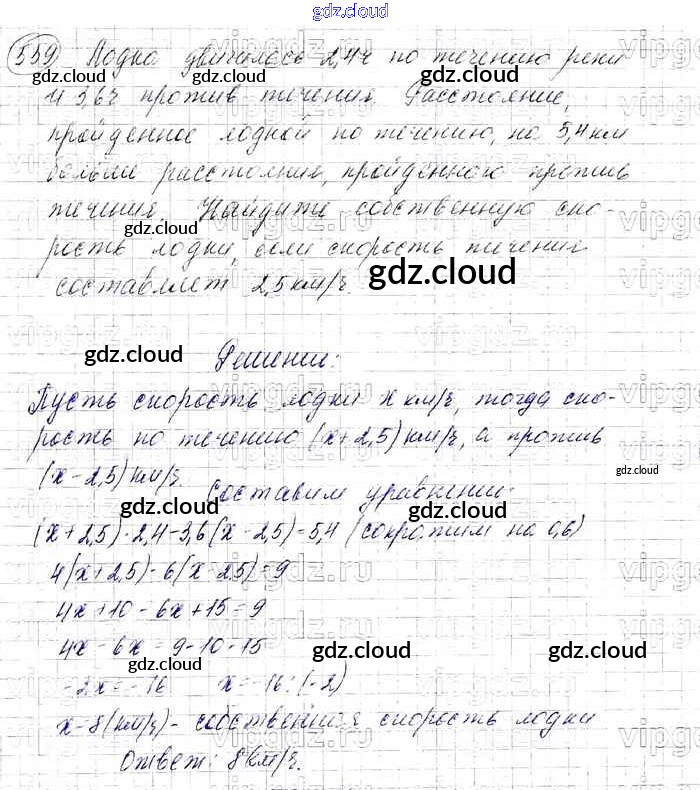 gdz.cloud
559 Лодка двигалась 2,4ч по течению реки
и 3,6ч против течения. Расстояние,
пройденное лодкой по течению, на 5,4 км
больше расстояния, пройденного против
течения. Найдите собственную ско-
рость лодки, если скорость течения
составляет 2,5 км/ч.
gdz.cloud
Решение:
Пусть скорость лодки x км/ч, тогда ско-
рость по течению (x+2,5) км/ч, а против
(x-2,5) км/ч.
Составим уравнение:
(x+2,5)·2,4-3,6(x-2,5)=5,4 (сократим на 0,6)
4(x+2,5)-6(x-2,5)=9
4x+10-6x+15=9
4x-6x=9-10-15
-2x=-16 x=-16:(-2)
x=8(км/ч)- собственная скорость лодки
Ответ: 8 км/ч.